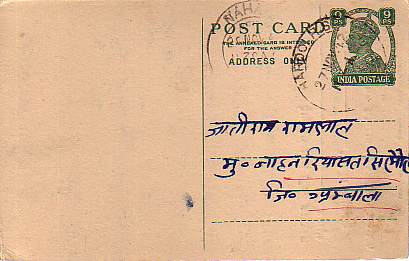 POST CARD
THE ANNEXED CARD IS INTENDED
FOR THE ANSWER
ADDRESS ONLY
9 9
PS PS
INDIA POSTAGE
NAHA
27 NOV
रामलाल
मु॰ नाहन रियासत सिरमौर
जि॰ अम्बाला